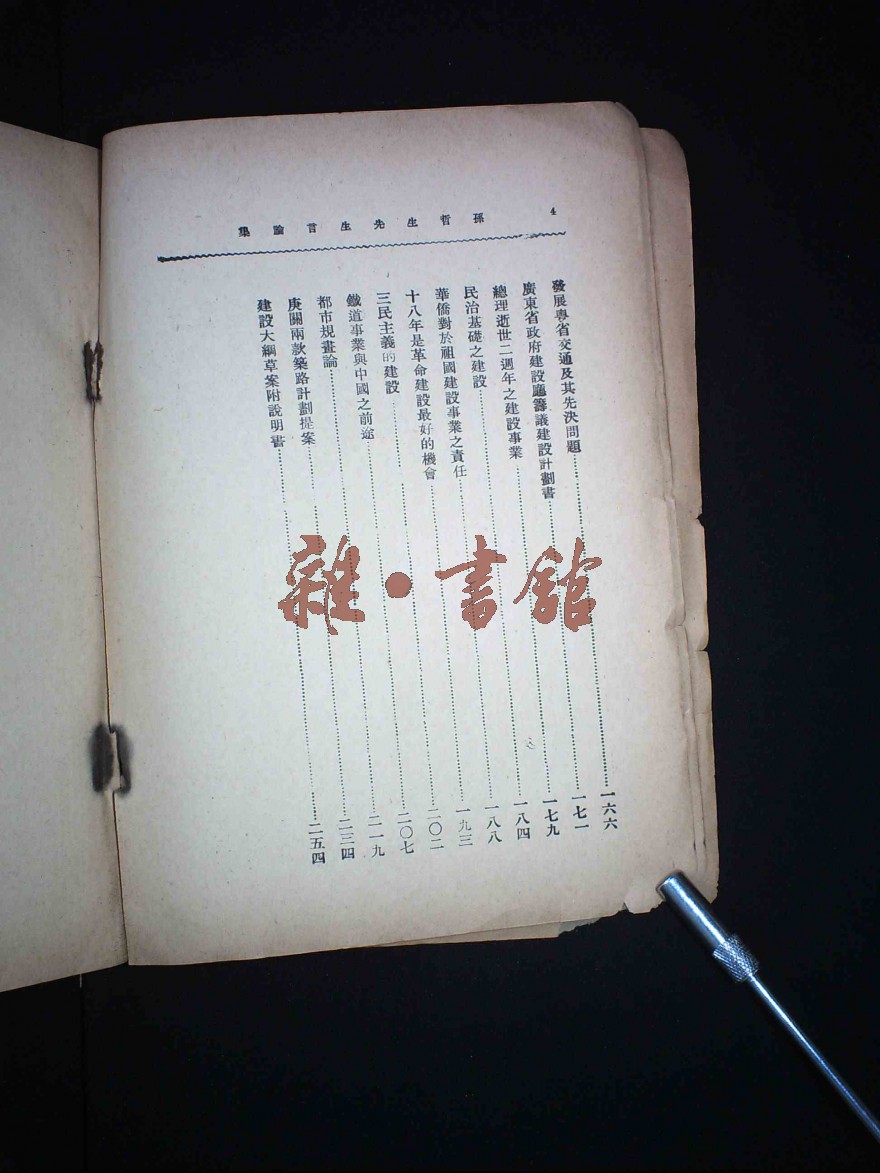 4 孫哲生先生言論集
發展粵省交通及其先決問題……一六六
廣東省政府建設廳籌議建設計劃書……一七一
總理逝世二週年之建設事業……一七九
民治基礎之建設……一八四
華僑對於祖國建設事業之責任……一八八
十八年是革命建設最好的機會……一九三
三民主義的建設……二〇二
鐵道事業與中國之前途……二〇七
都市規畫論……二一九
庚關兩款築路計劃提案……二三四
建設大綱草案附說明書……二五四
雜·書館